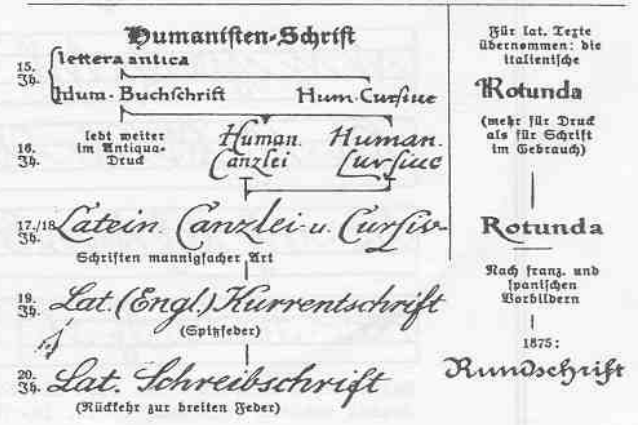 Humanisten-Schrift
15. Jh.
lettera antica
Hum.-Buchschrift Hum. Cursive
16. Jh.
lebt weiter im Antiqua-Druck
Human. Canzlei
Human. Cursive
17./18. Jh.
Latein. Canzlei- u. Cursiv-
Schriften mannigfacher Art
19. Jh.
Lat. (Engl.) Kurrentschrift
(Spitzfeder)
20. Jh.
Lat. Schreibschrift
(Rückkehr zur breiten Feder)
Für lat. Texte
übernommen: die
italienische
Rotunda
(mehr für Druck
als für Schrift
im Gebrauch)
Rotunda
Nach franz. und
spanischen
Vorbildern
1875:
Rundschrift